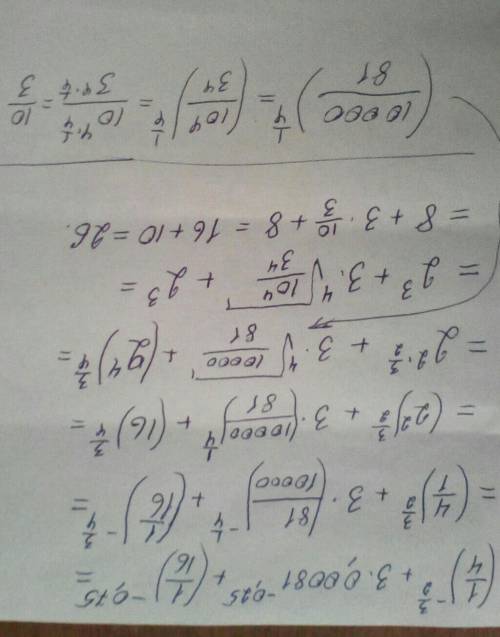 (1/4)^(-3/2) + 3·0,0081^(-0,25) + (1/16)^(-0,75) =
= (4/1)^(3/2) + 3·(81/10000)^(-1/4) + (1/16)^(-3/4) =
= (2²)^(3/2) + 3·(10000/81)^(1/4) + (16)^(3/4) =
= 2^(2·3/2) + 3·⁴√(10000/81) + (2⁴)^(3/4) =
= 2³ + 3·⁴√(10⁴/3⁴) + 2³ =
= 8 + 3·10/3 + 8 = 16 + 10 = 26.
(10000/81)^(1/4) = (10⁴/3⁴)^(1/4) = 10^(4·1/4)/3^(4·1/4) = 10/3